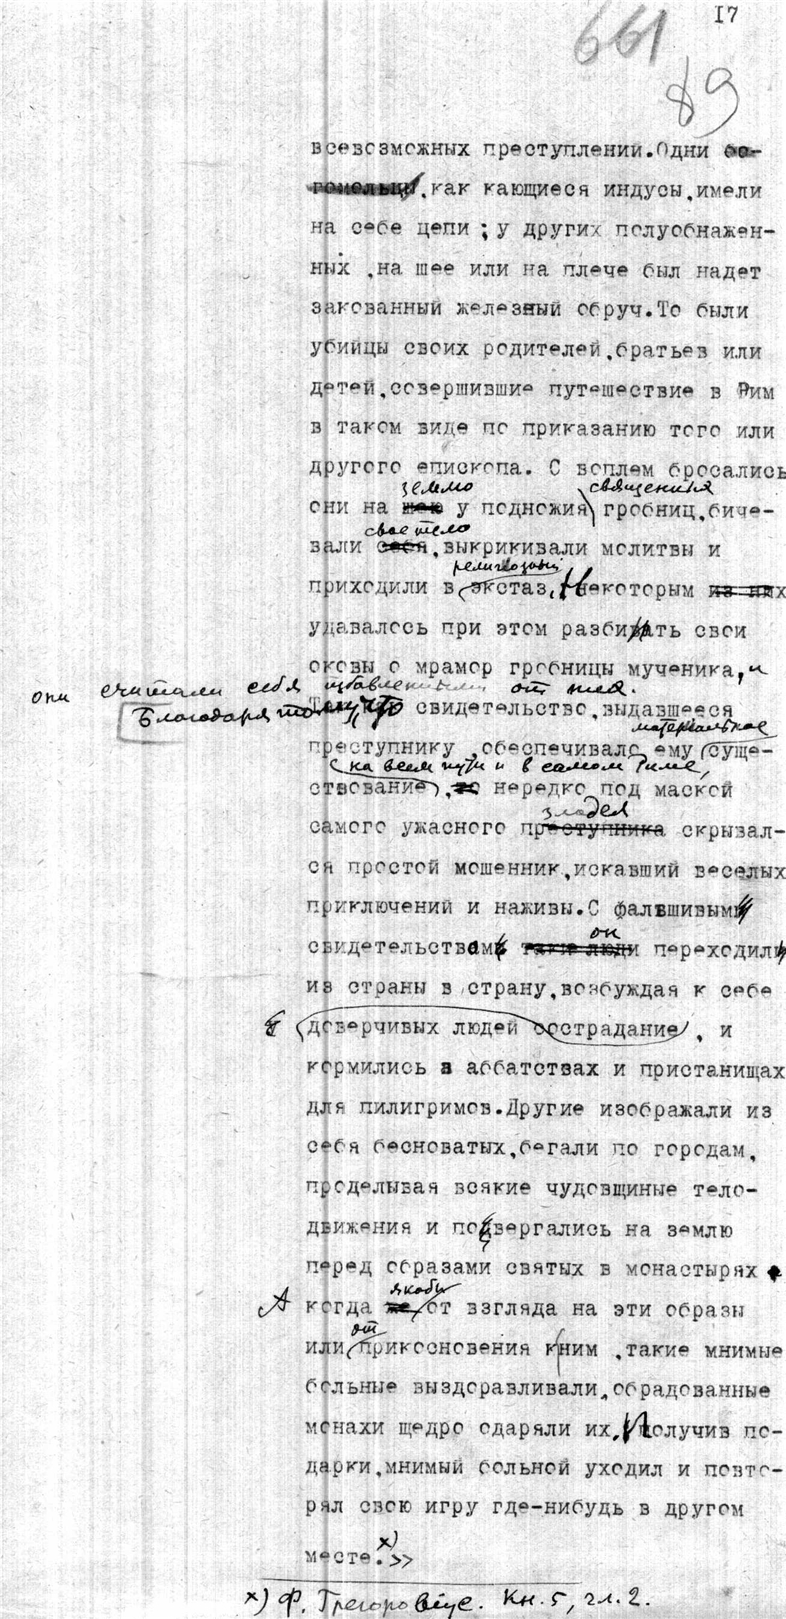 17
661
89
всевозможных преступлений.Одни бо-
гомольцы,как кающиеся индусы,имели
на себе цепи ; у других полуобнажен-
ных ,на шее или на плече был надет
закованный железный обруч.То были
убийцы своих родителей,братьев или
детей,совершившие путешествие в Рим
в таком виде по приказанию того или
другого епископа. С воплем бросались
землю священных
они на у подножия гробниц,биче-
свое тело
вали себя,выкрикивали молитвы и
религиозный
приходили в экстаз, Некоторым из них
удавалось при этом разбивать свои
оковы о мрамор гробницы мученика, и
они считали себя избавленными от
Благодаря тому, что свидетельство,выдавшееся
материальное
преступнику ,обеспечивало ему суще-
на всем пути и в самом Риме,
ствование , то нередко под маской
злодея
самого ужасного преступника скрывал-
ся простой мошенник,искавший веселых
приключений и наживы.С фальшивым
он
свидетельствам такие люди переходил
из страны в страну,возбуждая к себе
доверчивых людей сострадание , и
кормились в аббатствах и пристанищах
для пилигримов.Другие изображали из
себя бесноватых,бегали по городам,
проделывая всякие чудовщиные тело-
движения и повергались на землю
перед образами святых в монастырях .
якобы
А когда же от взгляда на эти образы
от
или прикосновения к ним ,такие мнимые
больные выздоравливали,обрадованные
монахи щедро одаряли их. Получив по-
дарки,мнимый больной уходил и повто-
рял свою игру где-нибудь в другом
месте.х)»
х) Ф. Грегоровиус. Кн. 5, гл. 2.